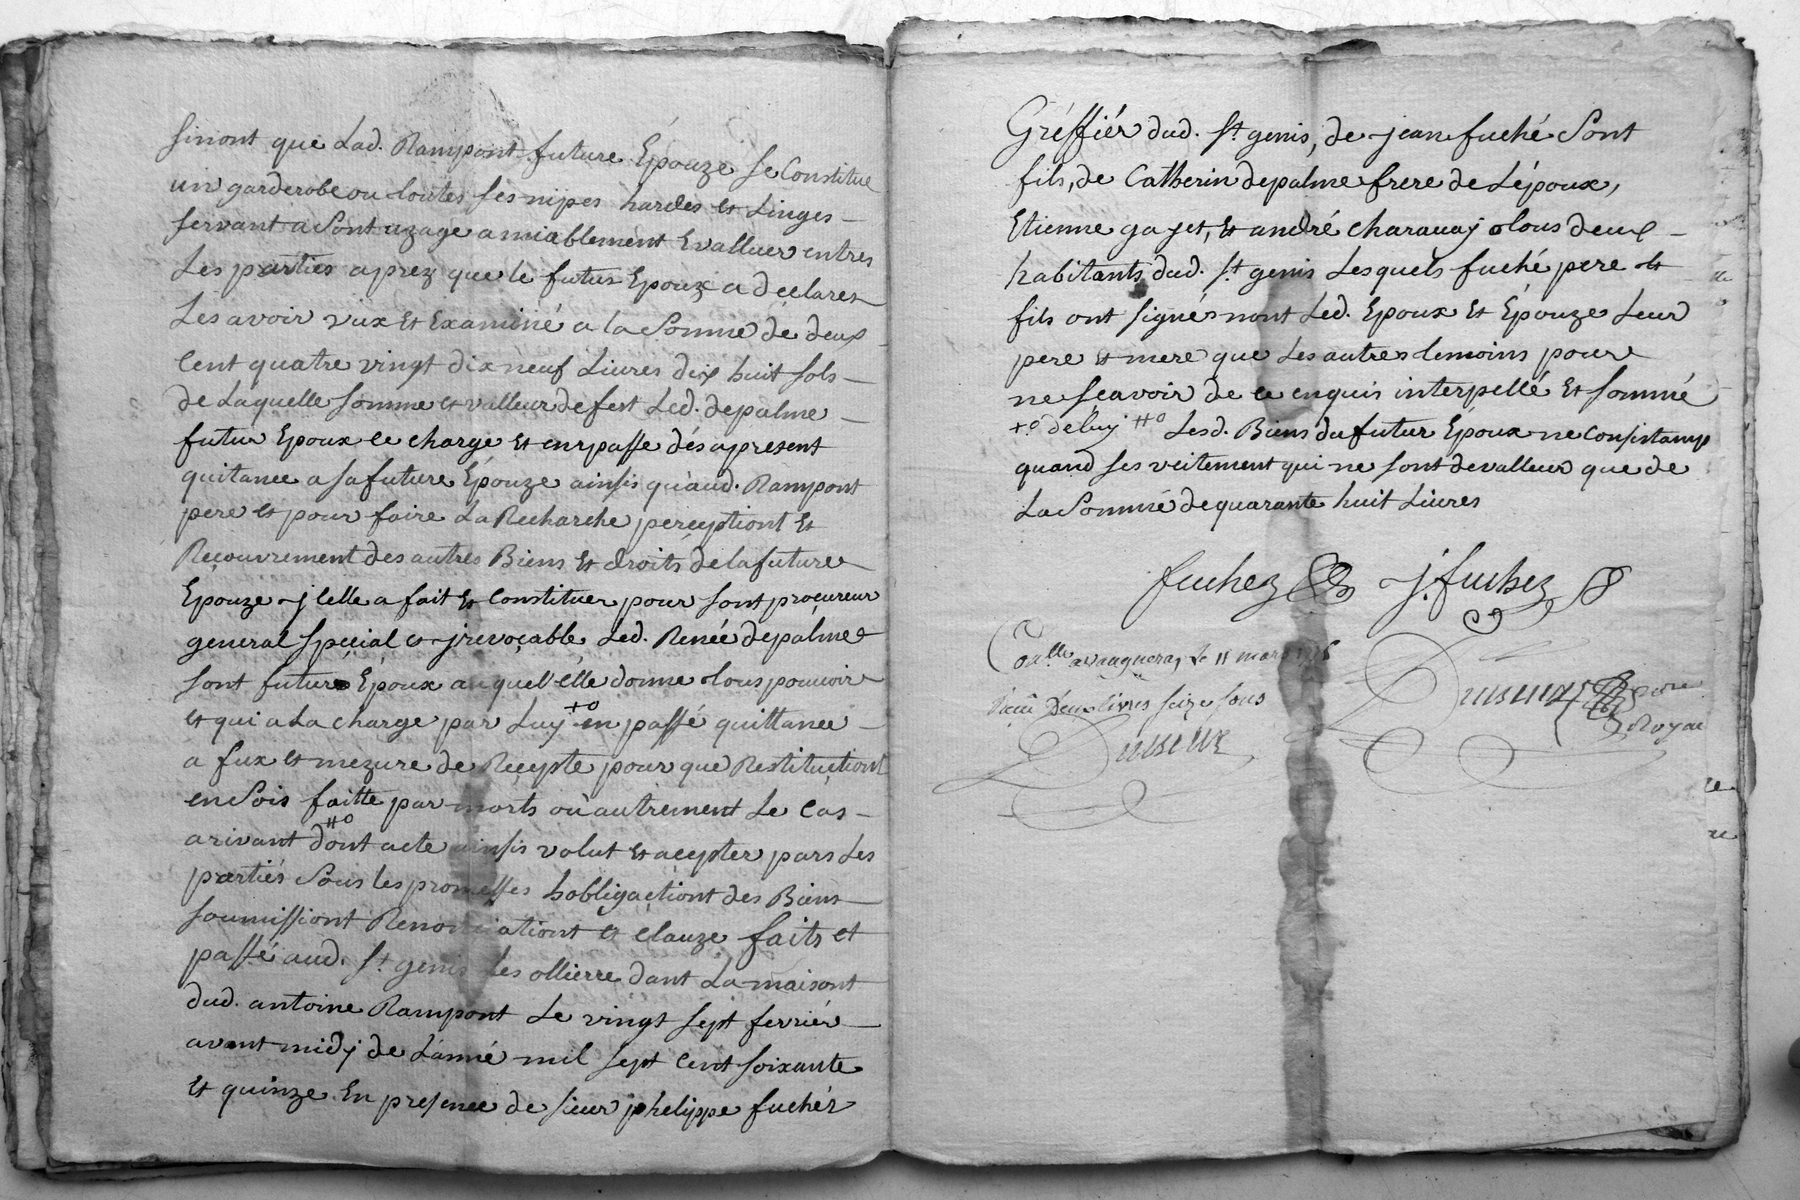 sinont que Lad. Rampont future Épouze se Constitue
un garderobe ou toutes ses nipes hardes et Linges –
servant a Sont uzage amiablement Evalluer entres
Les parties aprez que le futur Epouz a déclarer
Les avoir vüx Et Examiné a la Somme de deux
Cent quatre vingt dix neuf Livres dix huit sols –
de Laquelle somme et valleur de fest Led. depalme –
futur Epoux ce charge Et en passe dés apresent
quitance a sa future Épouze ainsis qu'àud. Rampont
pere et pour faire La Recharche perceptiont Et
Recouvrement des autres Biens Et droits de la future
Epouze jcelle a fait Et Constituer pour sont procureur
general spécial et jrevocable Led. Renée depalme
sont futur Époux auquel elle donne tous pouvoir
et qui a La charge par Luy +o en passé quittance –
a fux et mezure de Recepte pour que Restitutiont
en Sois faitte par morts où autrement Le Cas –
arivant ++o dont acte ainsis volut Et accepter pars Les
partiés Sous les promesses hobligactiont des Biens
soumissiont Renontiationt et clauze faits et
passé aud. St genis Les ollierre dant La maisont
dud. antoine Rampont Le vingt sept fevriér –
avant midy de L'anné mil sept Cent soixante
Et quinze En presence de sieur phelippe fuchér
Gréffiér dud. St genis, de jean fuché Sont
fils, de Catherin depalme frere de L'époux,
Etienne gayet, Et andré Charavay tous deux –
habitants dud. St genis Lesquels fuché pere et
fils ont signér nont Led. Époux Et Épouze Leur
pere et mere que Les autres temoins pour
ne sçavoir de ce enquis interpellé Et sommé
+o de luy ++o Lesd. Biens du futur Époux ne Consistamp
quand ses veitement qui ne sont de valleur que de
La Somme de quarante huit Livres
fuchez J. fuchez
Con.lle a vaugneray le 11 mars 1775
Reçu Deux livres seize sous
Royal